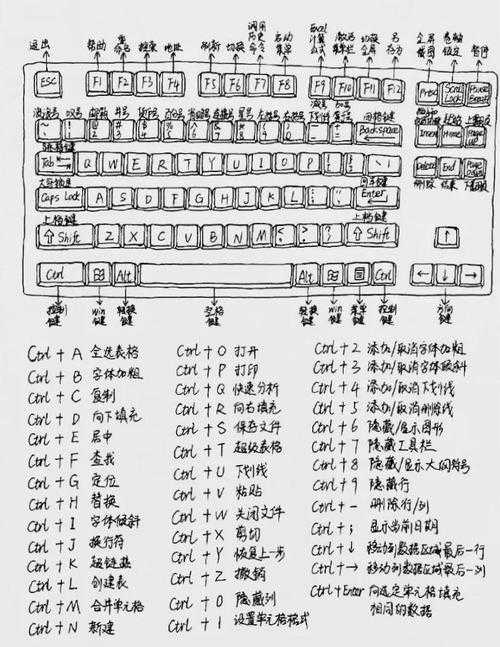 退出 帮助 重命名 搜索 地址 刷新 切换 调用历史命令 启动菜单 Excel计算公式 激活菜单栏 切换全屏 名存为 全屏截图 卷轴锁定 暂停
ESC F1 F2 F3 F4 F5 F6 F7 F8 F9 F10 F11 F12 Prtsc Scroll Lock Pause Break
Backspace Home
Tab Q W E R T Y U I O P End
大写锁定
Caps Lock A S D F G H J K L Enter
上档键 上档键
Shift Z X C V B N M Shift ↑
Ctrl Alt Alt Ctrl ← ↓ →
控制键 win键 转换键 空格键 转换键 win键 菜单键 控制键 方向键
Ctrl + A 全选表格
Ctrl + B 字体加粗
Ctrl + C 复制
Ctrl + D 向下填充
Ctrl + E 居中
Ctrl + F 查找
Ctrl + G 定位
Ctrl + H 替换
Ctrl + I 字体倾斜
Ctrl + J 换行符
Ctrl + K 超链接
Ctrl + L 创建表
Ctrl + M 合并单元格
Ctrl + N 新建
Ctrl + O 打开
Ctrl + P 打印
Ctrl + Q 快速分析
Ctrl + R 向右填充
Ctrl + S 保存文件
Ctrl + T 超级表格
Ctrl + U 下划线
Ctrl + V 粘贴
Ctrl + W 关闭文件
Ctrl + X 剪切
Ctrl + Y 恢复上一步
Ctrl + Z 撤销
Ctrl + 0 隐藏列
Ctrl + 1 设置单元格格式
Ctrl + 2 添加/取消字体加粗
Ctrl + 3 添加/取消字体倾斜
Ctrl + 4 添加/取消下划线
Ctrl + 5 添加/取消删除线
Ctrl + 6 隐藏/显示图形
Ctrl + 7 隐藏工具栏
Ctrl + 8 隐藏/显示大纲符号
Ctrl + 9 隐藏行
Ctrl + - 删除行/列
Ctrl + ; 显示当前日期
Ctrl + ↓ 移动到数据区域最后一行
Ctrl + → 移动到数据区域最后一列
Ctrl + Enter 向选定单元格填充
相同的数据